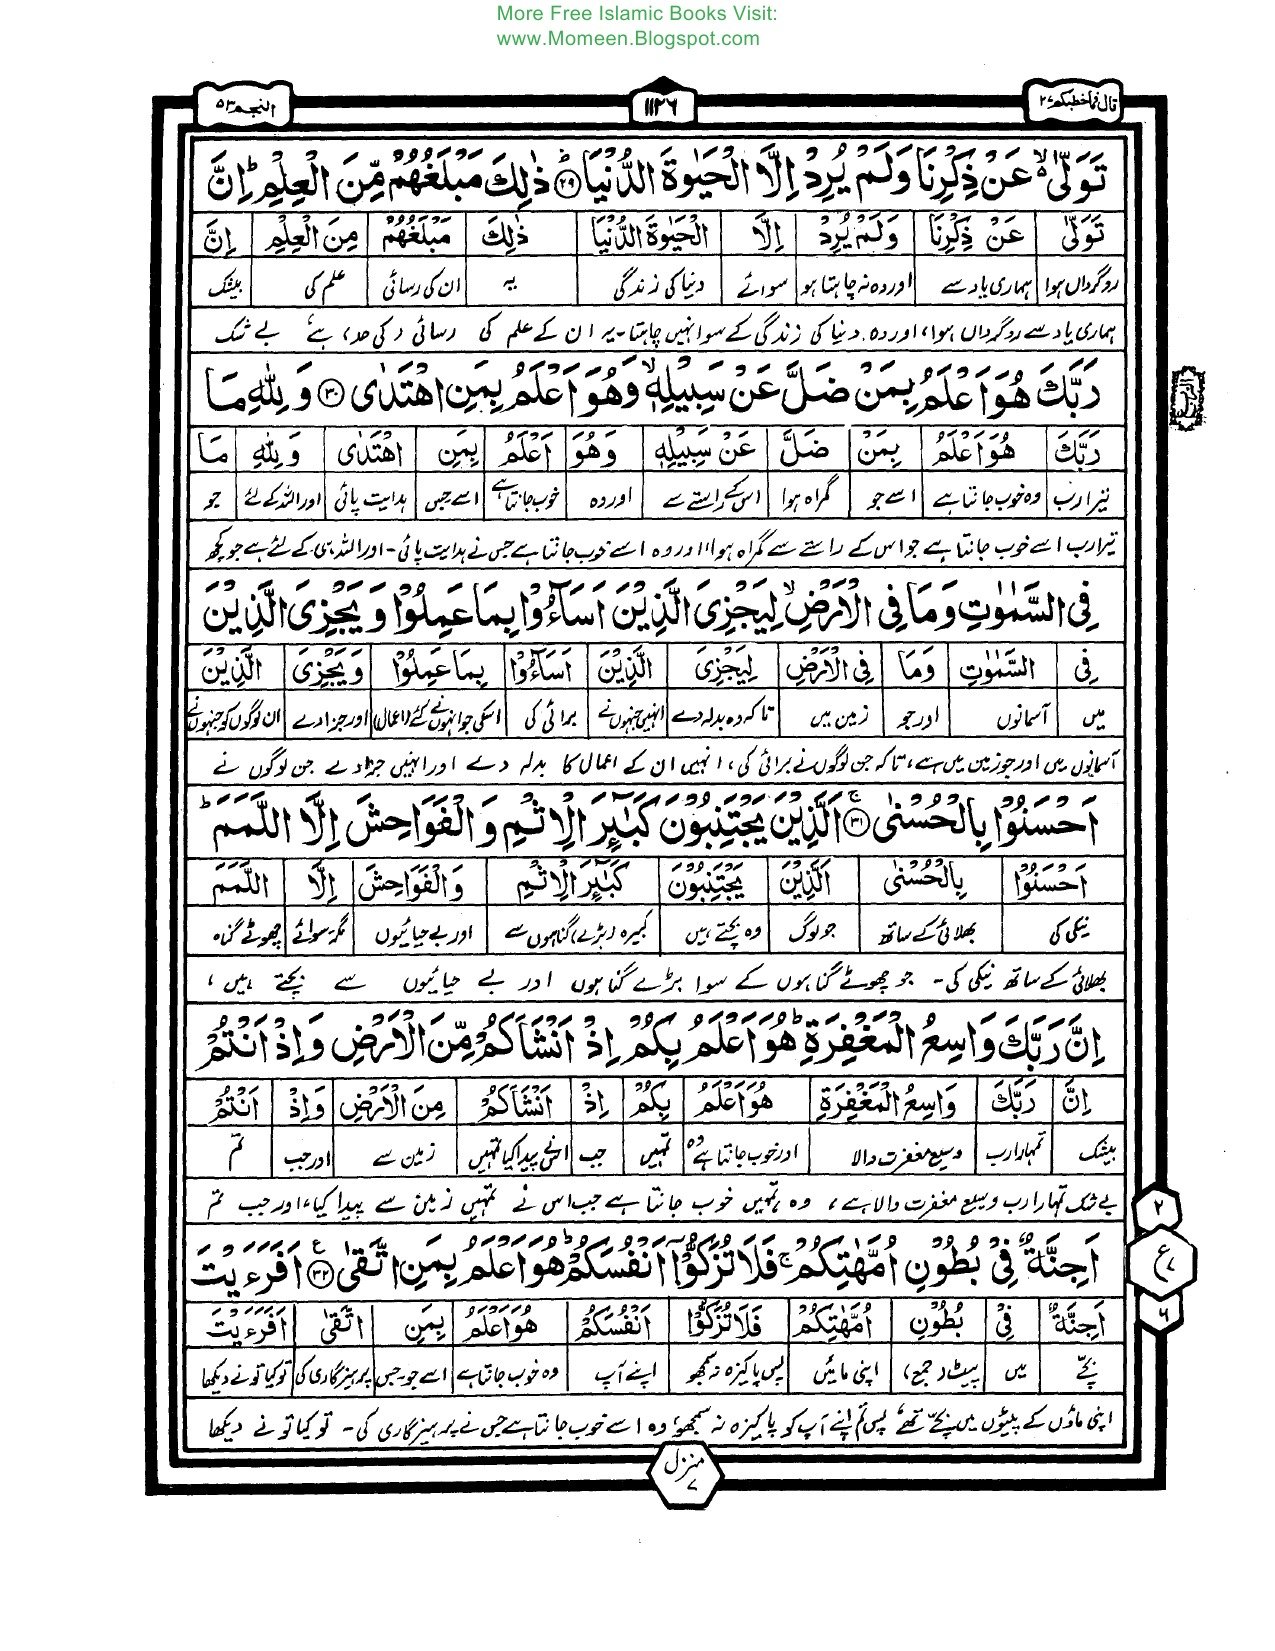 More Free Islamic Books Visit:
www.Momeen.Blogspot.com
قال فماخطبكم ۲۷
۱۱۲۶
النجم ۵۳
تَوَلّٰى ۙ۬ عَنْ ذِكْرِنَا وَلَمْ يُرِدْ اِلَّا الْحَيٰوةَ الدُّنْيَا ﴿۲۹﴾ ذٰلِكَ مَبْلَغُهُمْ مِّنَ الْعِلْمِ ؕ اِنَّ
تَوَلّٰى عَنْ ذِكْرِنَا وَلَمْ يُرِدْ اِلَّا الْحَيٰوةَ الدُّنْيَا ذٰلِكَ مَبْلَغُهُمْ مِنَ الْعِلْمِ اِنَّ
روگرداں ہوا ہماری یاد سے اور وہ نہ چاہتا ہو سوائے دنیا کی زندگی یہ ان کی رسائی علم کی بیشک
ہماری یاد سے روگرداں ہوا، اور وہ دنیا کی زندگی کے سوا نہیں چاہتا۔ یہ ان کے علم کی رسائی (کی حد) ہے بے شک
رَبَّكَ هُوَ اَعْلَمُ بِمَنْ ضَلَّ عَنْ سَبِيْلِهٖ ۙ وَهُوَ اَعْلَمُ بِمَنِ اهْتَدٰى ﴿۳۰﴾ وَ لِلّٰهِ مَا
رَبَّكَ هُوَ اَعْلَمُ بِمَنْ ضَلَّ عَنْ سَبِيْلِهٖ وَهُوَ اَعْلَمُ بِمَنِ اهْتَدٰى وَ لِلّٰهِ مَا
تیرا رب وہ خوب جانتا ہے اسے جو گمراہ ہوا اس کے راستے سے اور وہ خوب جانتا ہے اسے جس ہدایت پائی اور اللہ کے لئے جو
تیرا رب اسے خوب جانتا ہے جو اس کے راستے سے گمراہ ہوا، اور وہ اسے خوب جانتا ہے جس نے ہدایت پائی۔ اور اللہ ہی کے لئے ہے جو کچھ
فِى السَّمٰوٰتِ وَمَا فِى الْاَرْضِ ۙ لِيَجْزِىَ الَّذِيْنَ اَسَآءُوْا بِمَا عَمِلُوْا وَ يَجْزِىَ الَّذِيْنَ
فِى السَّمٰوٰتِ وَمَا فِى الْاَرْضِ لِيَجْزِىَ الَّذِيْنَ اَسَآءُوْا بِمَا عَمِلُوْا وَيَجْزِىَ الَّذِيْنَ
میں آسمانوں اور جو زمین میں تاکہ وہ بدلہ دے انہیں جنہوں نے برائی کی اسکی جو انہوں نے کئے (اعمال) اور جزا دے ان لوگوں کو جنہوں نے
آسمانوں میں اور جو زمین میں ہے، تاکہ جن لوگوں نے برائی کی، انہیں ان کے اعمال کا بدلہ دے اور انہیں جزا دے جن لوگوں نے
اَحْسَنُوْا بِالْحُسْنٰى ﴿۳۱﴾ ۚ اَلَّذِيْنَ يَجْتَنِبُوْنَ كَبٰٓئِرَ الْاِثْمِ وَ الْفَوَاحِشَ اِلَّا اللَّمَمَ ؕ
اَحْسَنُوْا بِالْحُسْنٰى اَلَّذِيْنَ يَجْتَنِبُوْنَ كَبٰٓئِرَ الْاِثْمِ وَالْفَوَاحِشَ اِلَّا اللَّمَمَ
نیکی کی بھلائی کے ساتھ جو لوگ وہ بچتے ہیں کبیرہ (بڑے) گناہوں سے اور بے حیائیوں مگر سوائے چھوٹے گناہ
بھلائی کے ساتھ نیکی کی۔ جو چھوٹے گناہوں کے سوا بڑے گناہوں اور بے حیائیوں سے بچتے ہیں،
اِنَّ رَبَّكَ وَاسِعُ الْمَغْفِرَةِ ؕ هُوَ اَعْلَمُ بِكُمْ اِذْ اَنْشَاَكُمْ مِّنَ الْاَرْضِ وَ اِذْ اَنْتُمْ
اِنَّ رَبَّكَ وَاسِعُ الْمَغْفِرَةِ هُوَ اَعْلَمُ بِكُمْ اِذْ اَنْشَاَكُمْ مِنَ الْاَرْضِ وَاِذْ اَنْتُمْ
بیشک تمہارا رب وسیع مغفرت والا وہ اور خوب جانتا ہے تمہیں جب اس نے پیدا کیا تمہیں زمین سے اور جب تم
بے شک تمہارا رب وسیع مغفرت والا ہے، وہ تمہیں خوب جانتا ہے جب اس نے تمہیں زمین سے پیدا کیا، اور جب تم
اَجِنَّةٌ فِىْ بُطُوْنِ اُمَّهٰتِكُمْ ۚ فَلَا تُزَكُّوْٓا اَنْفُسَكُمْ ؕ هُوَ اَعْلَمُ بِمَنِ اتَّقٰى ﴿۳۲﴾ ع اَفَرَءَيْتَ
اَجِنَّةٌ فِىْ بُطُوْنِ اُمَّهٰتِكُمْ فَلَا تُزَكُّوْٓا اَنْفُسَكُمْ هُوَ اَعْلَمُ بِمَنِ اتَّقٰى اَفَرَءَيْتَ
بچّے میں پیٹ (جمع) اپنی مائیں پس پاکیزہ نہ سمجھو اپنے آپ وہ خوب جانتا ہے اسے جو۔جس پرہیزگاری کی تو کیا تو نے دیکھا
اپنی ماؤں کے پیٹوں میں بچے تھے، پس تم اپنے آپ کو پاکیزہ نہ سمجھو، وہ اسے خوب جانتا ہے جس نے پرہیزگاری کی۔ تو کیا تو نے دیکھا
۲
ع
۷
۶
منزل ۷